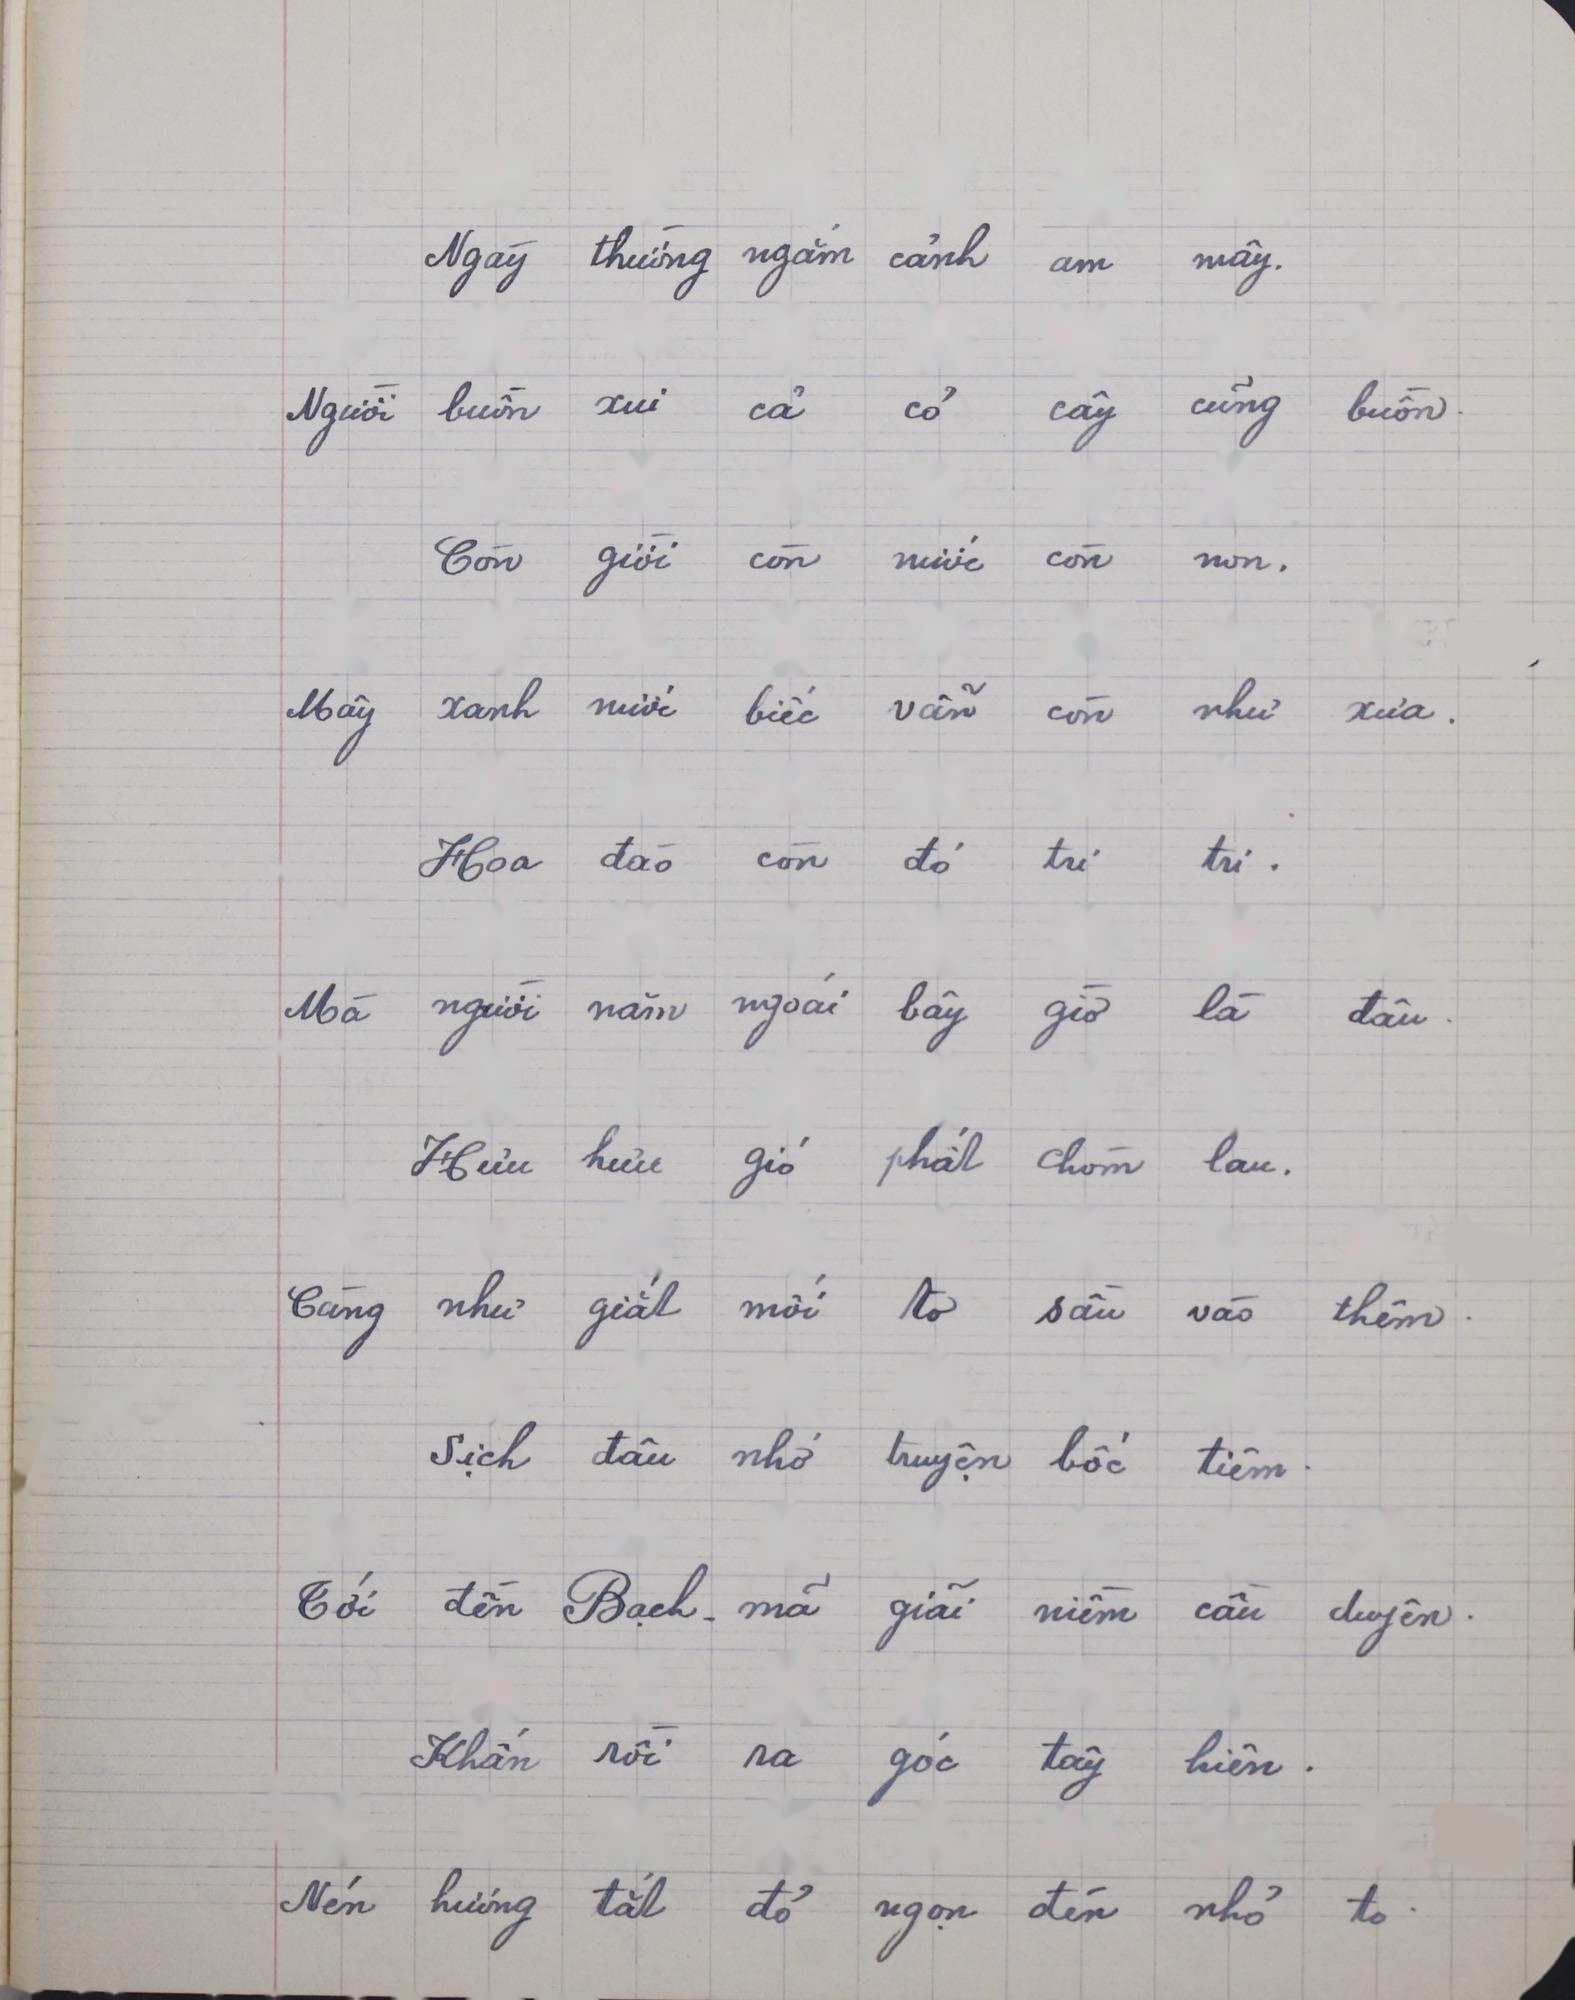 Ngày thường ngắm cảnh am mây.
Người buồn xui cả cỏ cây cũng buồn.
Còn giời còn nước còn non.
Mây xanh nước biếc vẫn còn như xưa.
Hoa đào còn đó trơ trơ.
Mà người năm ngoái bây giờ là đâu.
Hưu hưu gió phất chòm lau.
Càng như giắt mối tơ sầu vào thêm.
Sịch đâu nhớ truyện bốc tiêm.
Tới đền Bạch-mã giãi niềm cầu duyên.
Khấn rồi ra góc tây hiên.
Nén hương tắt đỏ ngọn đèn nhỏ to.